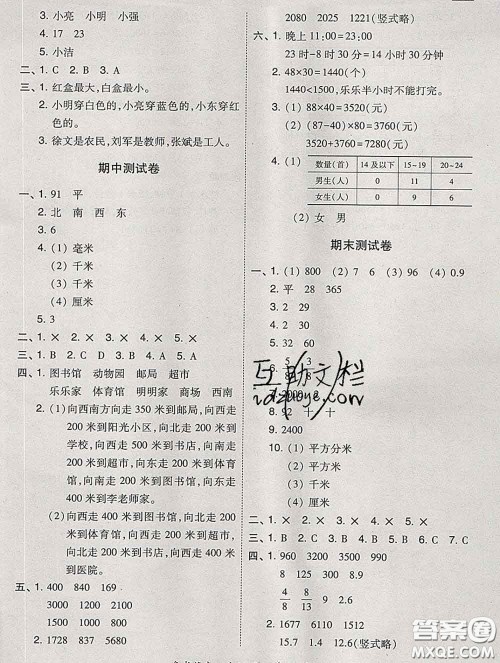 3. 小亮 小明 小强
4. 17 23
5. 小洁
二、1. C 2. B 3. A
三、1. 红盒最大，白盒最小。
2. 小明穿白色的，小亮穿蓝色的，小东穿红
色的。
3. 徐文是农民，刘军是教师，张斌是工人。
期中测试卷
一、1. 91 平
2. 北 南 西 东
3. 6
4. (1) 毫米
(2) 千米
(3) 千米
(4) 厘米
5. 3
二、1. × 2. × 3. × 4. × 5. ×
三、1. C 2. B 3. C 4. A 5. A
四、1. 图书馆 动物园 邮局 超市
乐乐家 体育馆 明明家 商场 西南
2. (1) 向西南方向走 350 米到邮局，向西走
200 米到阳光小区，向北走 200 米到
学校，向西走 200 米到书店，向西走
200 米到商场，向南走 200 米到体育
馆，向西走 200 米到超市，向东走 200
米到图书馆，向东走 400 米到李老师家。
(2) 向西走 400 米到图书馆，向西走 200
米到超市，向北走 200 米到体育馆，
向北走 200 米到书店，向西走 400
米到医院。
五、1. 400 840 169
3000 1200 2100
800 1500 4000
2. 1728 837 5680
2080 2025 1221(竖式略)
六、1. 晚上 11:00=23:00
23 时-8 时 30 分=14 时 30 分
2. 48×30=1440(个)
1440<1500，乐乐半小时不能打完。
3. (1) 88×40=3520(元)
(2) 94×40=3760(元)
3520+3760=7280(元)
4. (1) 数量(首) 14 及以下 15~19 20~24
男生(人) 0 11 4
女生(人) 0 9 6
(2) 女 男
期末测试卷
一、1. (1) 800 (2) 7 6 (3) 96 (4) 0.9
2. 平 28 365
3. 2 29
4. 30
5. 27
6. 5/8 3/8
8. 92 十 十
9. 2400
10. (1) 平方分米
(2) 千米
(3) 千米
(4) 厘米
二、1. × 2. × 3. √ 4. √ 5. ×
三、1. C 2. B 3. C 4. B 5. B 6. A 7. C
四、1. 960 3200 3500 990
8 125 300 8.1
4/8 8/13 9 2.6
2. 1677 6110 12……4
15.7 1.4 12.6(竖式略)
互助文栏
答案圈
MXQE.COM